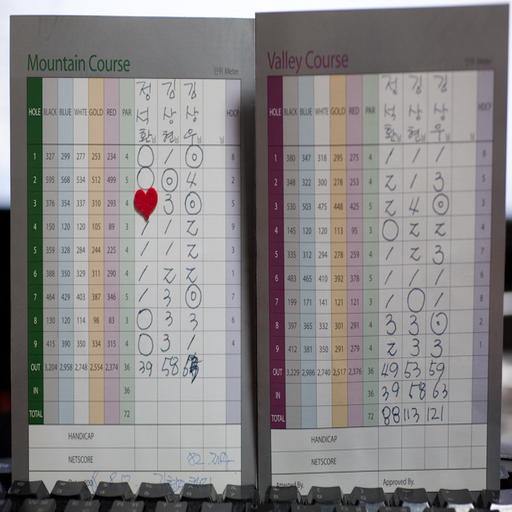 Mountain Course
단위 Meter
HOLE BLACK BLUE WHITE GOLD RED PAR 정석환님 김상현님 김상우님 님 HDCP
1 327 299 277 253 234 4 ○ / ◎ 8
2 595 568 534 512 499 5 ○ ◎ 4 2
3 376 354 337 310 293 4 3 ◎ 5
4 150 120 120 105 89 3 / / 2 9
5 359 328 284 244 225 4 / / 2 3
6 388 350 329 311 290 4 / 2 2 1
7 464 429 403 387 346 5 / 3 ◎ 7
8 130 120 114 98 83 3 ○ 3 3 6
9 415 390 350 334 315 4 ○ 3 / 4
OUT 3,204 2,958 2,748 2,554 2,374 36 39 58
IN 36
TOTAL 72
HANDICAP
NETSCORE
Valley Course
단위 Meter
HOLE BLACK BLUE WHITE GOLD RED PAR 정석환님 김상현님 김상우님 님 HDCP
1 380 347 318 295 275 4 / / /
2 348 322 300 278 253 4 2 / 3
3 530 503 475 448 425 5 2 4 ◎
4 145 120 120 113 95 3 ○ 2 2
5 335 312 294 278 259 4 / 2 3
6 483 465 410 392 378 5 / / /
7 199 171 141 121 121 3 / ○ /
8 397 365 332 301 291 4 3 3 ⊙ 2
9 412 381 350 291 279 4 2 3 3 1
OUT 3,229 2,986 2,740 2,517 2,376 36 49 53 59
IN 36 39 58 63
TOTAL 72 88 113 121
HANDICAP
NETSCORE
Attested By. Approved By.